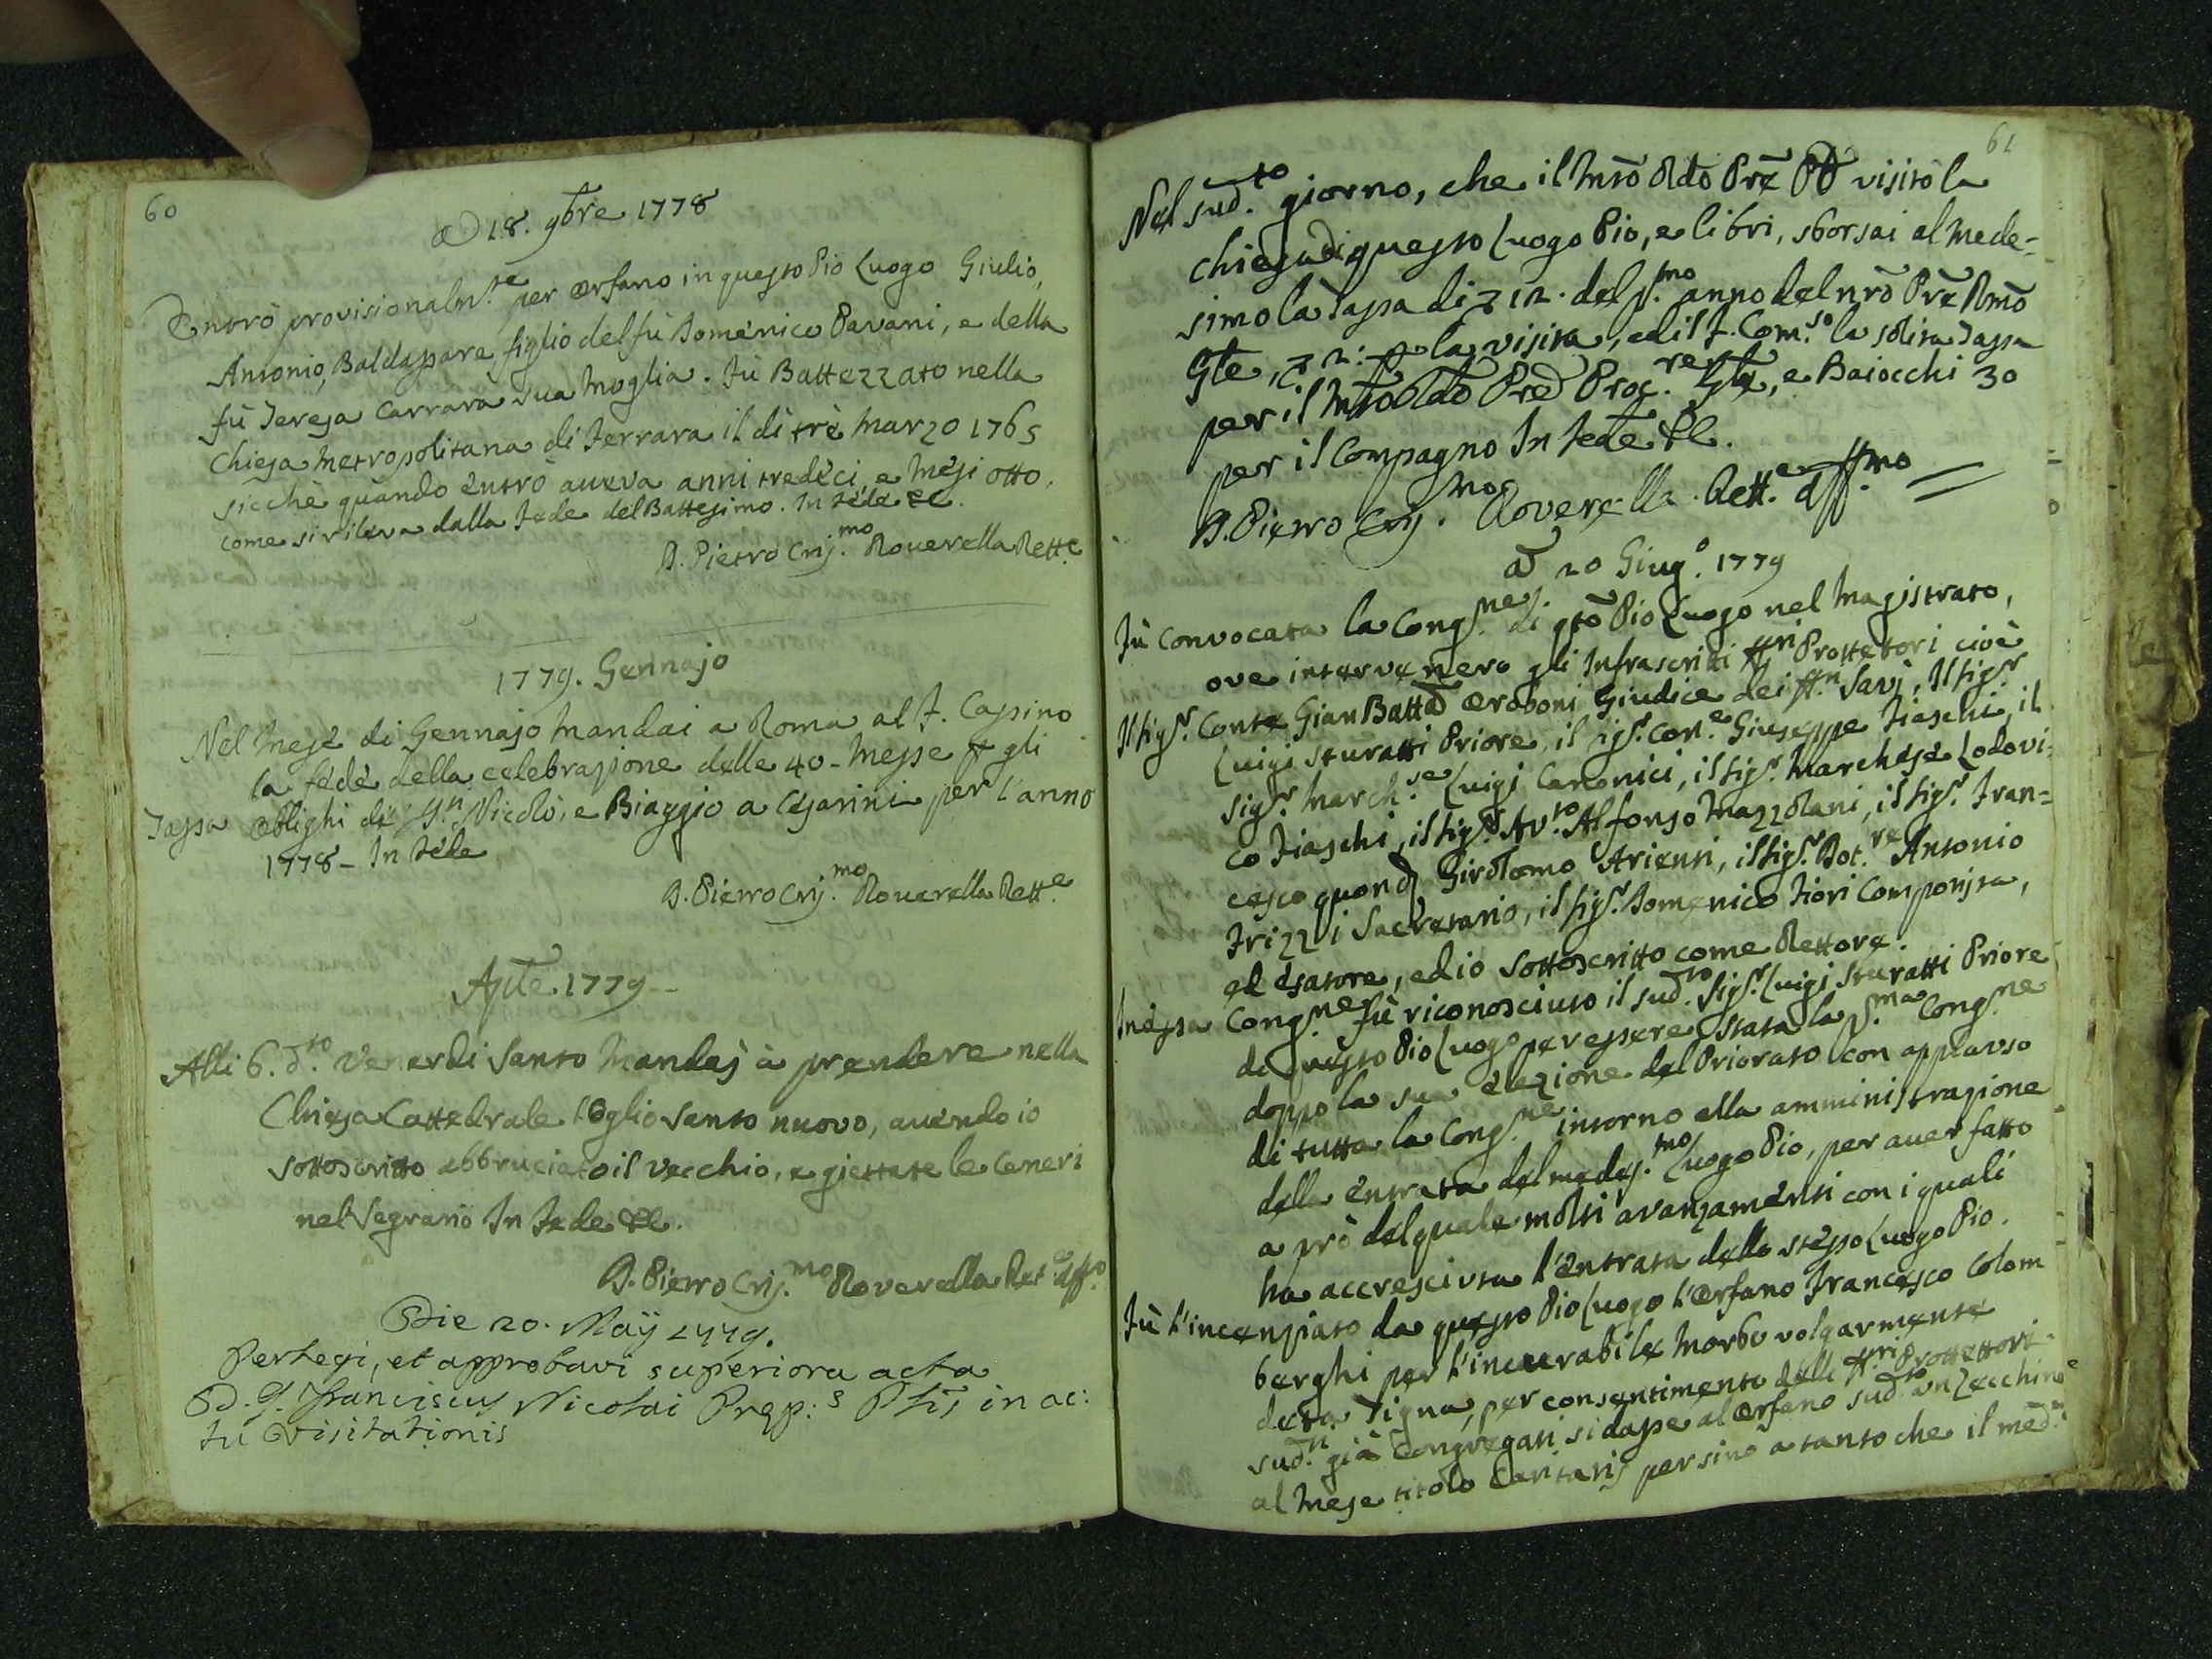 60
A 18. 9bre 1778
Entrò provisionalm.te per orfano in questo Pio Luogo Giulio,
Antonio, Baldassare figlio del fù Domenico Pavani, e della
fù Teresa Carrara sua moglia. Fù Battezzato nella
Chiesa Metropolitana di Ferrara il dì trè Marzo 1765
sicchè quando entrò aveva anni tredeci, e mesi otto,
come si rileva dalla fede del Battesimo. In fede &c.
D. Pietro Cris.mo Roverella Rett.e
1779. Gennajo
Nel mese di Gennajo mandai a Roma al P. Cassino
la fede della celebrazione delle 40 - Messe p gli
Tassa oblighi di SSn. Nicolò, e Biaggio a Cesarini per l'anno
1778 - In fede
D. Pietro Cris.mo Roverella Rett.e
Aple. 1779 -
Alli 6. d.to Venerdi Santo mandaj à prendere nella
Chiesa Cattedrale l'Oglio Santo nuovo, avendo io
sottoscritto abbruciato il vecchio, e giettate le ceneri
nel Sagrario In fede &c.
D. Pietro Cris.mo Roverella Ret.e aff.o
Die 20. Maÿ 1779.
Perlegi, et approbavi superiora acta
D. J. Franciscus Nicolai Prep.s Plis in ac:
tu Visitationis
61
Nel sud.to giorno, che il Mto Rdo Pre Pd visitò la
chiesa di questo Luogo Pio, e libri, sborsai al mede-
simo la tassa di 12. del p.mo anno del nro Pre Rmo
Gle, 2: p la visita, ed il P. Com.so la solita Tassa
per il Mto Rdo Pred Proc.re Gle, e Baiocchi 30
per il Compagno In fede &c.
D. Pietro Cris.mo Roverella Rett.e aff.mo
A 20 Giug.o 1779
Fù convocata la Cong.ne di qto Pio Luogo nel Magistrato,
ove intervenero gli Infrascritti SSri Protettori cioè
Il Sigr. Conte Gian Batta Oroboni Giudice dei SSri Savj, Il Sigr
Luigi Sturatti Priore, il Sigr. Con.e Giuseppe Fiaschi, il
Sigr March.se Luigi Canonici, il Sigr. Marchese Lodovi-
co Fiaschi, il Sigr Av.to Alfonso Mazzolani, il Sigr. Fran=
cesco quond Girolomo Arienti, il Sigr. Dot.re Antonio
Frizzi Sacretario, il Sigr. Domenico Fiori Computista,
ed Esatore, ed io sottoscritto come Rettore.
In essa Cong.ne fù riconosciuto il sud.to Sigr. Luigi Sturatti Priore
di questo Pio Luogo per essere stata la p.ma Cong.ne
doppo la sua elezione del Priorato con applauso
di tutta la Cong.ne intorno alla amministrazione
della entrata del medes.mo Luogo Pio, per aver fatto
a prò del quale molti avanzamenti con i quali
ha accresciuta l'entrata dello stesso Luogo Pio.
Fù l'incenziato da questo Pio Luogo l'Orfano Francesco Colom
berghi per l'incurabile morbo volgarmente
detta Tigna, per consentimento delli SSri Prottettori
sud.ti già Congregati si dasse al Orfano sud.to un Zecchino
al mese titolo Caritatis persino a tanto che il med.